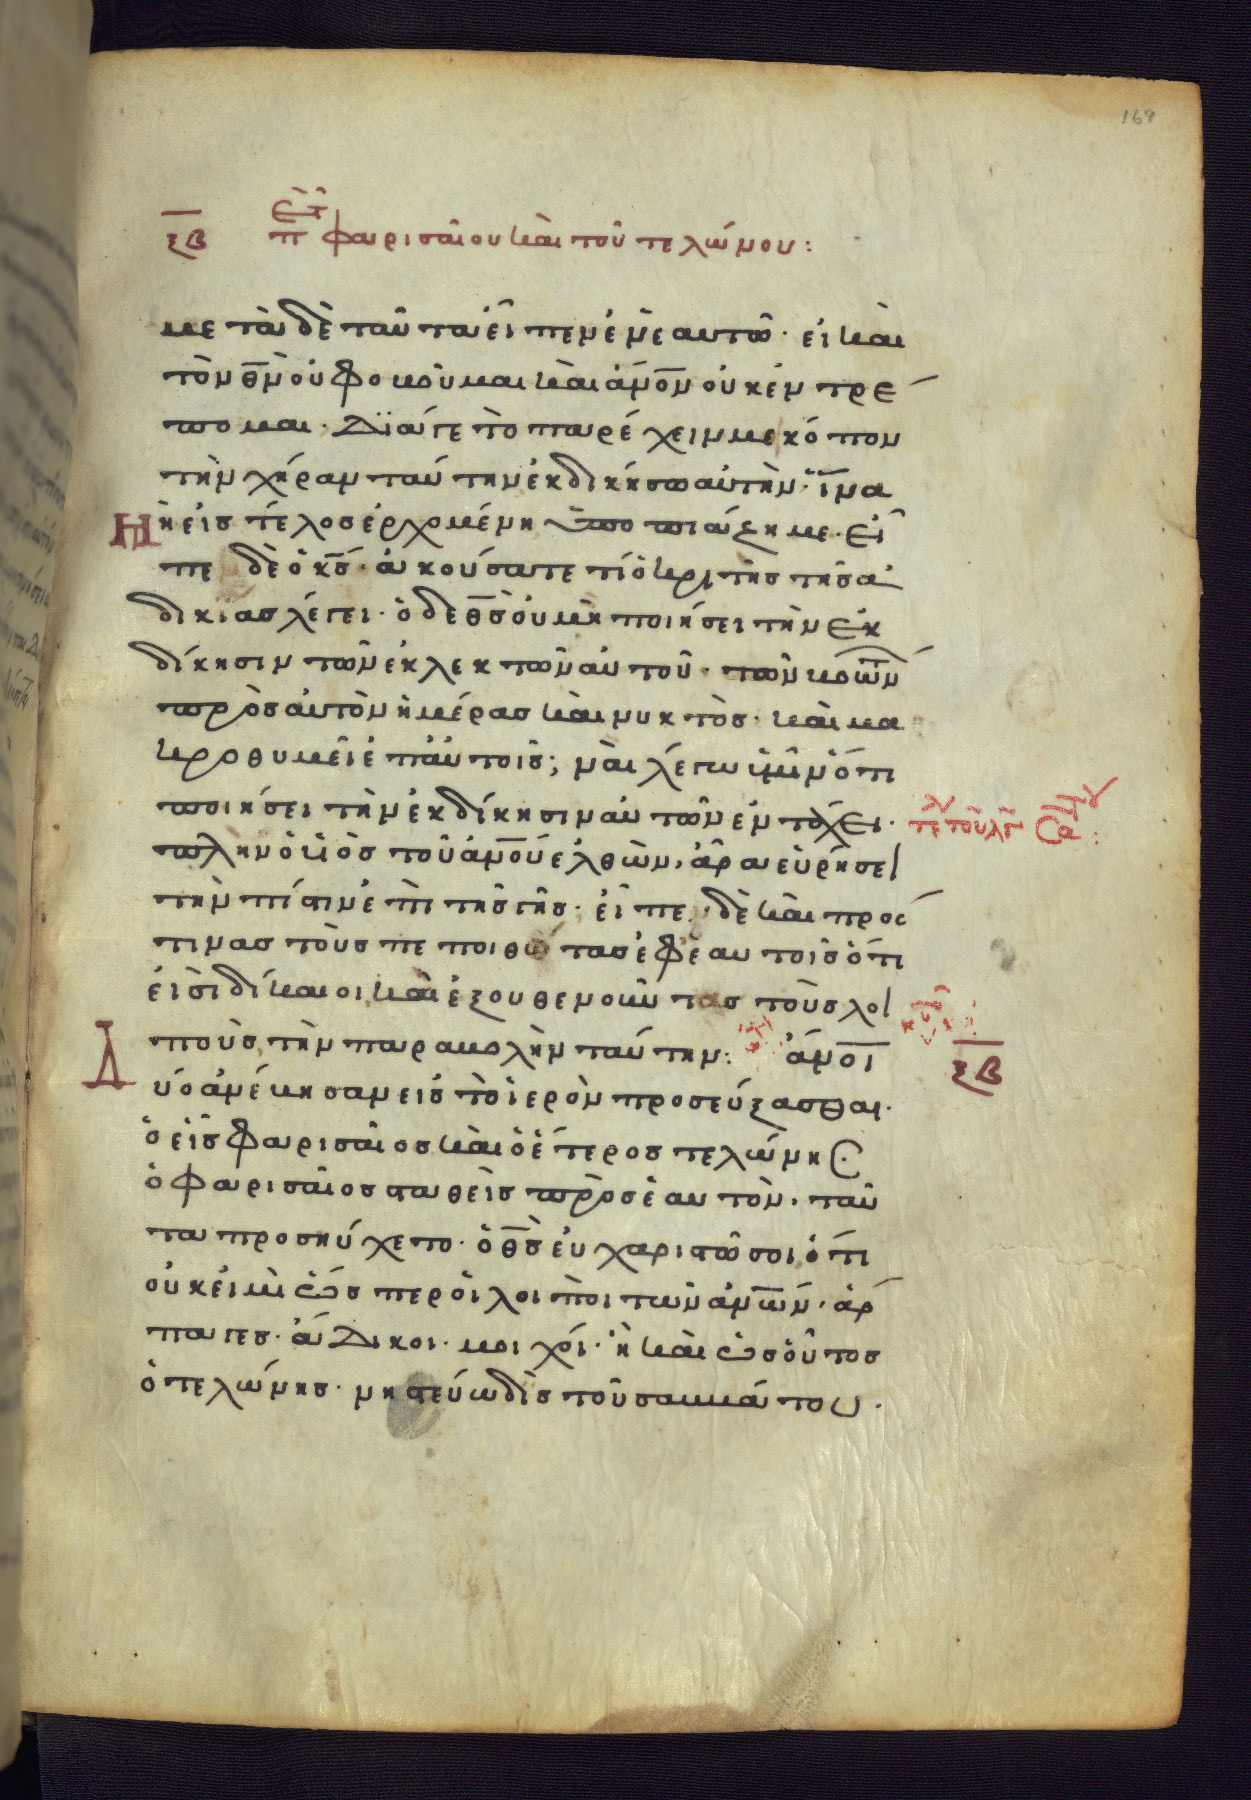 168
ξβ π φαρισαίου και του τελώνου:
με τὰ δὲ ταῦτα εἶπεν ἐν ἑαυτῶ· εἰ καὶ
τὸν θ̅ν̅ οὐ φοβοῦμαι καὶ ἀν̅ο̅ν οὐκ ἐντρέ
πομαι· διάγε τὸ παρέχειν με κόπον
τὴν χήραν ταύτην ἐκδικήσω αὐτὴν· ἵνα
μὴ εἰς τέλος ἐρχομένη ὑποπιάζη με· εἶ
πε δὲ ὁ κ̅ς̅· ἀκούσατε τί ὁ κριτὴς τῆς ἀ
δικίας λέγει· ὁ δε θ̅ς̅ οὐ μὴ ποιήσει τὴν ἐκ
δίκησιν τῶν ἐκλεκτῶν αὐτοῦ· τῶν βοών
πρὸς αὐτὸν ἡμέρας καὶ νυκτὸς· καὶ μα
κροθυμεῖ ἐπ' αὐτοῖς; ναὶ λέγω ὑμῖν ὅτι
ποιήσει τὴν ἐκδίκησιν αὐτῶν ἐν τάχει·
πλὴν ὁ υἱὸς τοῦ ἀν̅ο̅υ ἐλθὼν, ἆρα εὑρήσει
τὴν πίστιν ἐπὶ τῆς γῆς· εἶπε δὲ καὶ πρός
τινας τοὺς πεποιθότας ἐφ' ἑαυτοῖς ὅτι
εἰσὶ δίκαιοι καὶ ἐξουθενοῦντας τοὺς λοι
ποὺς, τὴν παραβολὴν ταύτην: ἀν̅ο̅ι
Δύο ἀνέβησαν εἰς τὸ ἱερὸν προσεύξασθαι· ξβ
ὁ εἷς φαρισαῖος καὶ ὁ ἕτερος τελώνης
ὁ φαρισαῖος σταθεὶς πρὸς ἑαυτὸν, ταῦ
τα προσηύχετο· ὁ θ̅ς̅ εὐχαριστῶ σοι ὅτι
οὐκ εἰμὶ ὥσπερ οἱ λοιποὶ τῶν ἀν̅ω̅ν, ἅρ
παγες· ἄδικοι· μοιχοί· ἢ καὶ ὡς οὗτος
ὁ τελώνης· νηστεύω δὶς τοῦ σαββάτου·